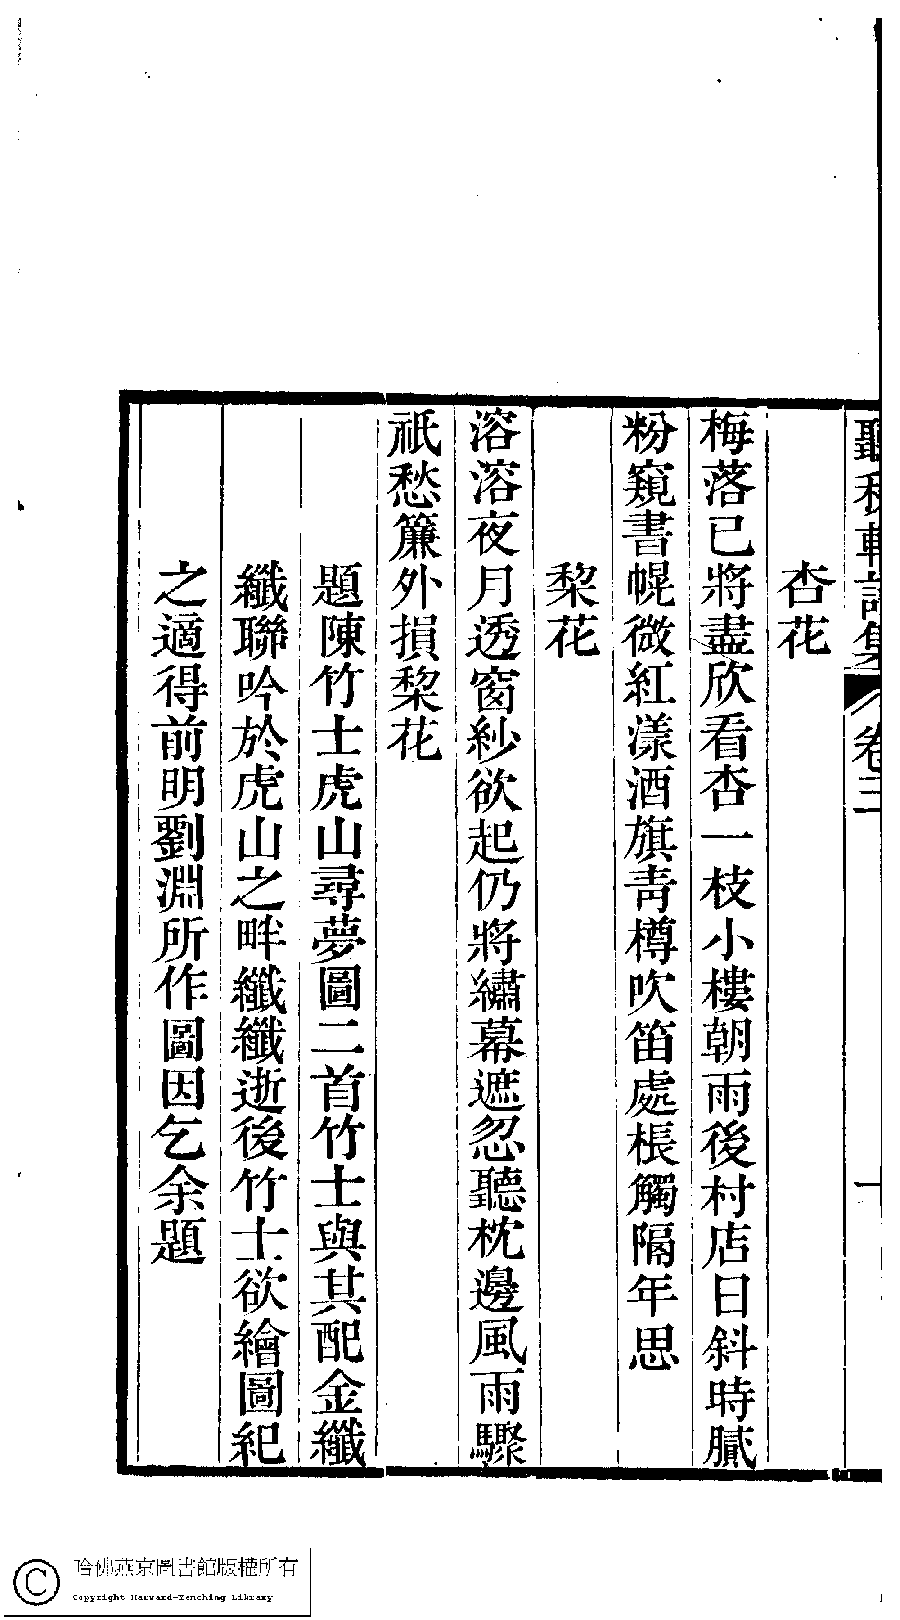 聽秋軒詩集　卷三　十
杏花
梅落已將盡欣看杏一枝小樓朝雨後村店日斜時膩
粉窺書幌微紅漾酒旗靑樽吹笛處棖觸隔年思
棃花
溶溶夜月透窗紗欲起仍將繡幕遮忽聽枕邊風雨驟
祇愁簾外損棃花
題陳竹士虎山尋夢圖二首竹士與其配金纖
纖聯吟於虎山之畔纖纖逝後竹士欲繪圖紀
之適得前明劉淵所作圖因乞余題
哈佛燕京圖書館版權所有
Copyright Harvard-Yenching Library